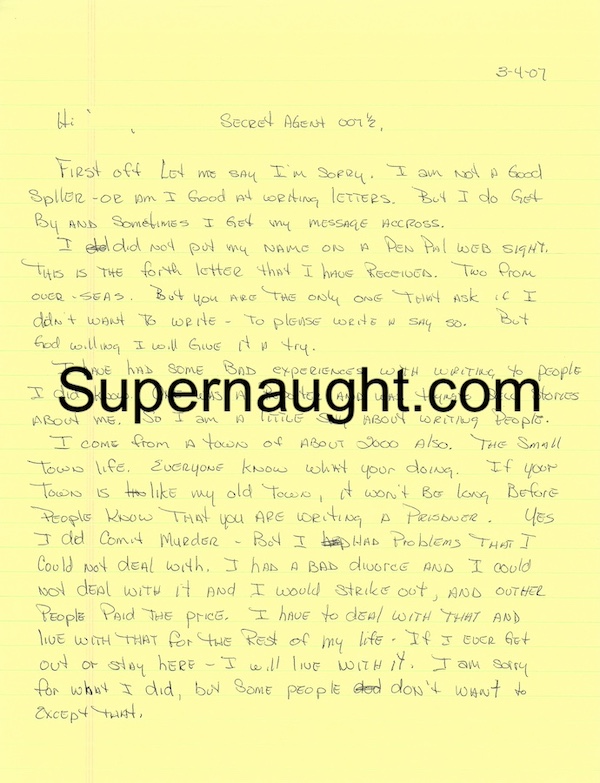 3-4-07
Hi Secret Agent 007½,
First off let me say I'm sorry. I am not a good
spller - or am I good at writing letters. But I do get
by and sometimes I get my message accross.
I did did not put my name on a Pen Pal web sight.
This is the forth letter that I have received. Two from
over-seas. But you are the only one that ask if I
didn't want to write - to please write n say so. But
God willing I will give it a try.
I have had some bad experiences with writing to people
I did know. One was a and was stories
about me. So I am a little about writing people.
I come from a town of about 2000 also. The small
town life. Everyone know what your doing. If your
town is like my old town, it won't be long before
people know that you are writing a prisoner. Yes
I did comit murder - but I had problems that I
could not deal with. I had a bad divorce and I could
not deal with it and I would strike out, and outher
people paid the price. I have to deal with that and
live with that for the rest of my life. If I ever get
out or stay here - I will live with it. I am sorry
for what I did, but some people don't want to
except that.
Supernaught.com